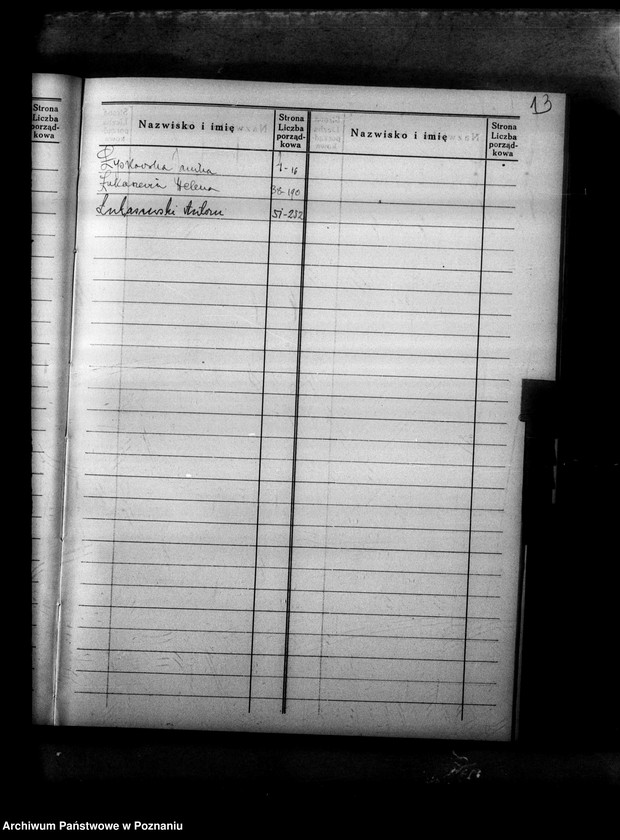 13
Strona
Liczba
porząd-
kowa
Nazwisko i imię
Strona
Liczba
porząd-
kowa
Nazwisko i imię
Strona
Liczba
porząd-
kowa
Łyskowska 1-16
Helena 38-190
Łukaszewski Antoni 57-282
Archiwum Państwowe w Poznaniu